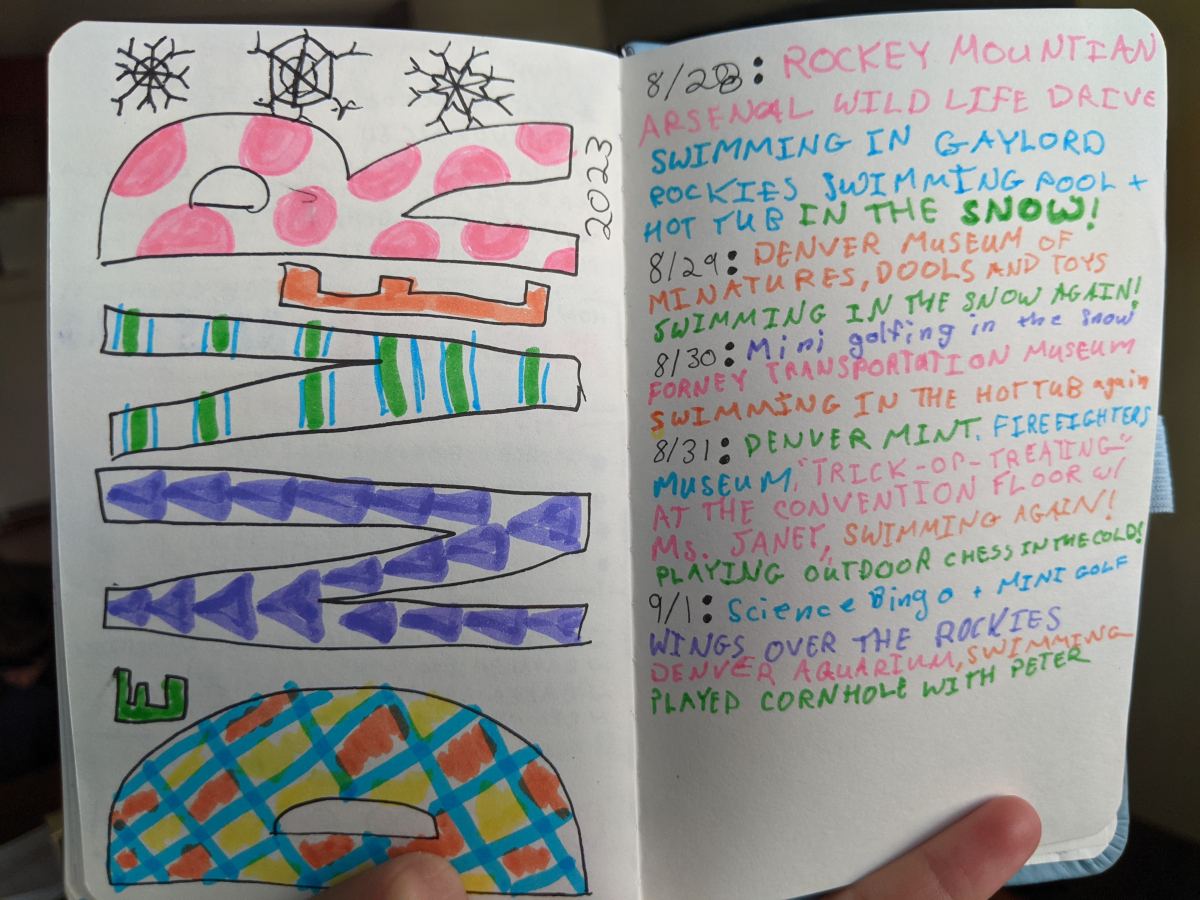 DENVER
2023
8/28: ROCKEY MOUNTIAN
ARSENAL WILD LIFE DRIVE
SWIMMING IN GAYLORD
ROCKIES SWIMMING POOL +
HOT TUB IN THE SNOW!
8/29: DENVER MUSEUM OF
MINATURES, DOOLS AND TOYS
SWIMMING IN THE SNOW AGAIN!
8/30: Mini golfing in the snow
FORNEY TRANSPORTATION MUSEUM
SWIMMING IN THE HOT TUB again
8/31: DENVER MINT, FIREFIGHTERS
MUSEUM, "TRICK-OR-TREATING"
AT THE CONVENTION FLOOR W/
Ms. JANET, SWIMMING AGAIN!
PLAYING OUTDOOR CHESS IN THE COLD!
9/1: Science Bingo + MINI GOLF
WINGS OVER THE ROCKIES
DENVER AQUARIUM, SWIMMING
PLAYED CORNHOLE WITH PETER